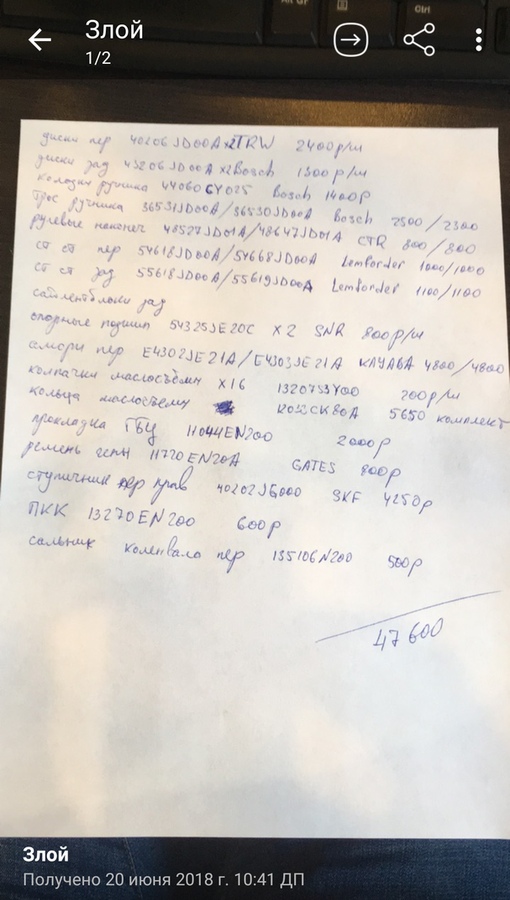 Злой
1/2
диски пер 40206JD00A x2 TRW 2400р/ш
диски зад 43206JD00A x2 Bosch 1300р/ш
колодки ручника 44060CY025 Bosch 1400р
трос ручника 36531JD00A/36530JD00A Bosch 2300/2300
рулевые наконеч 48527JD01A/48647JD01A CTR 800/800
ст ст пер 54618JD00A/54668JD00A Lemforder 1000/1000
ст ст зад 55618JD00A/55619JD00A Lemforder 1100/1100
сайлентблоки зад
опорные подшип 54325JE20C x 2 SNR 800р/ш
амори пер E4302JE21A/E4303JE21A KAYABA 4800/4800
колпачки маслосъёмн x16 1320753Y00 200р/ш
кольца маслосъемн 5650 комплект
прокладка ГБЦ 11044EN200 2000р
ремень 11720EN20A GATES 800р
ступичник пер прав 40202JG000 SKF 4250р
ПКК 13270EN200 600р
сальник коленвала пер 135106N200 500р
47600
Злой
Получено 20 июня 2018 г. 10:41 ДП